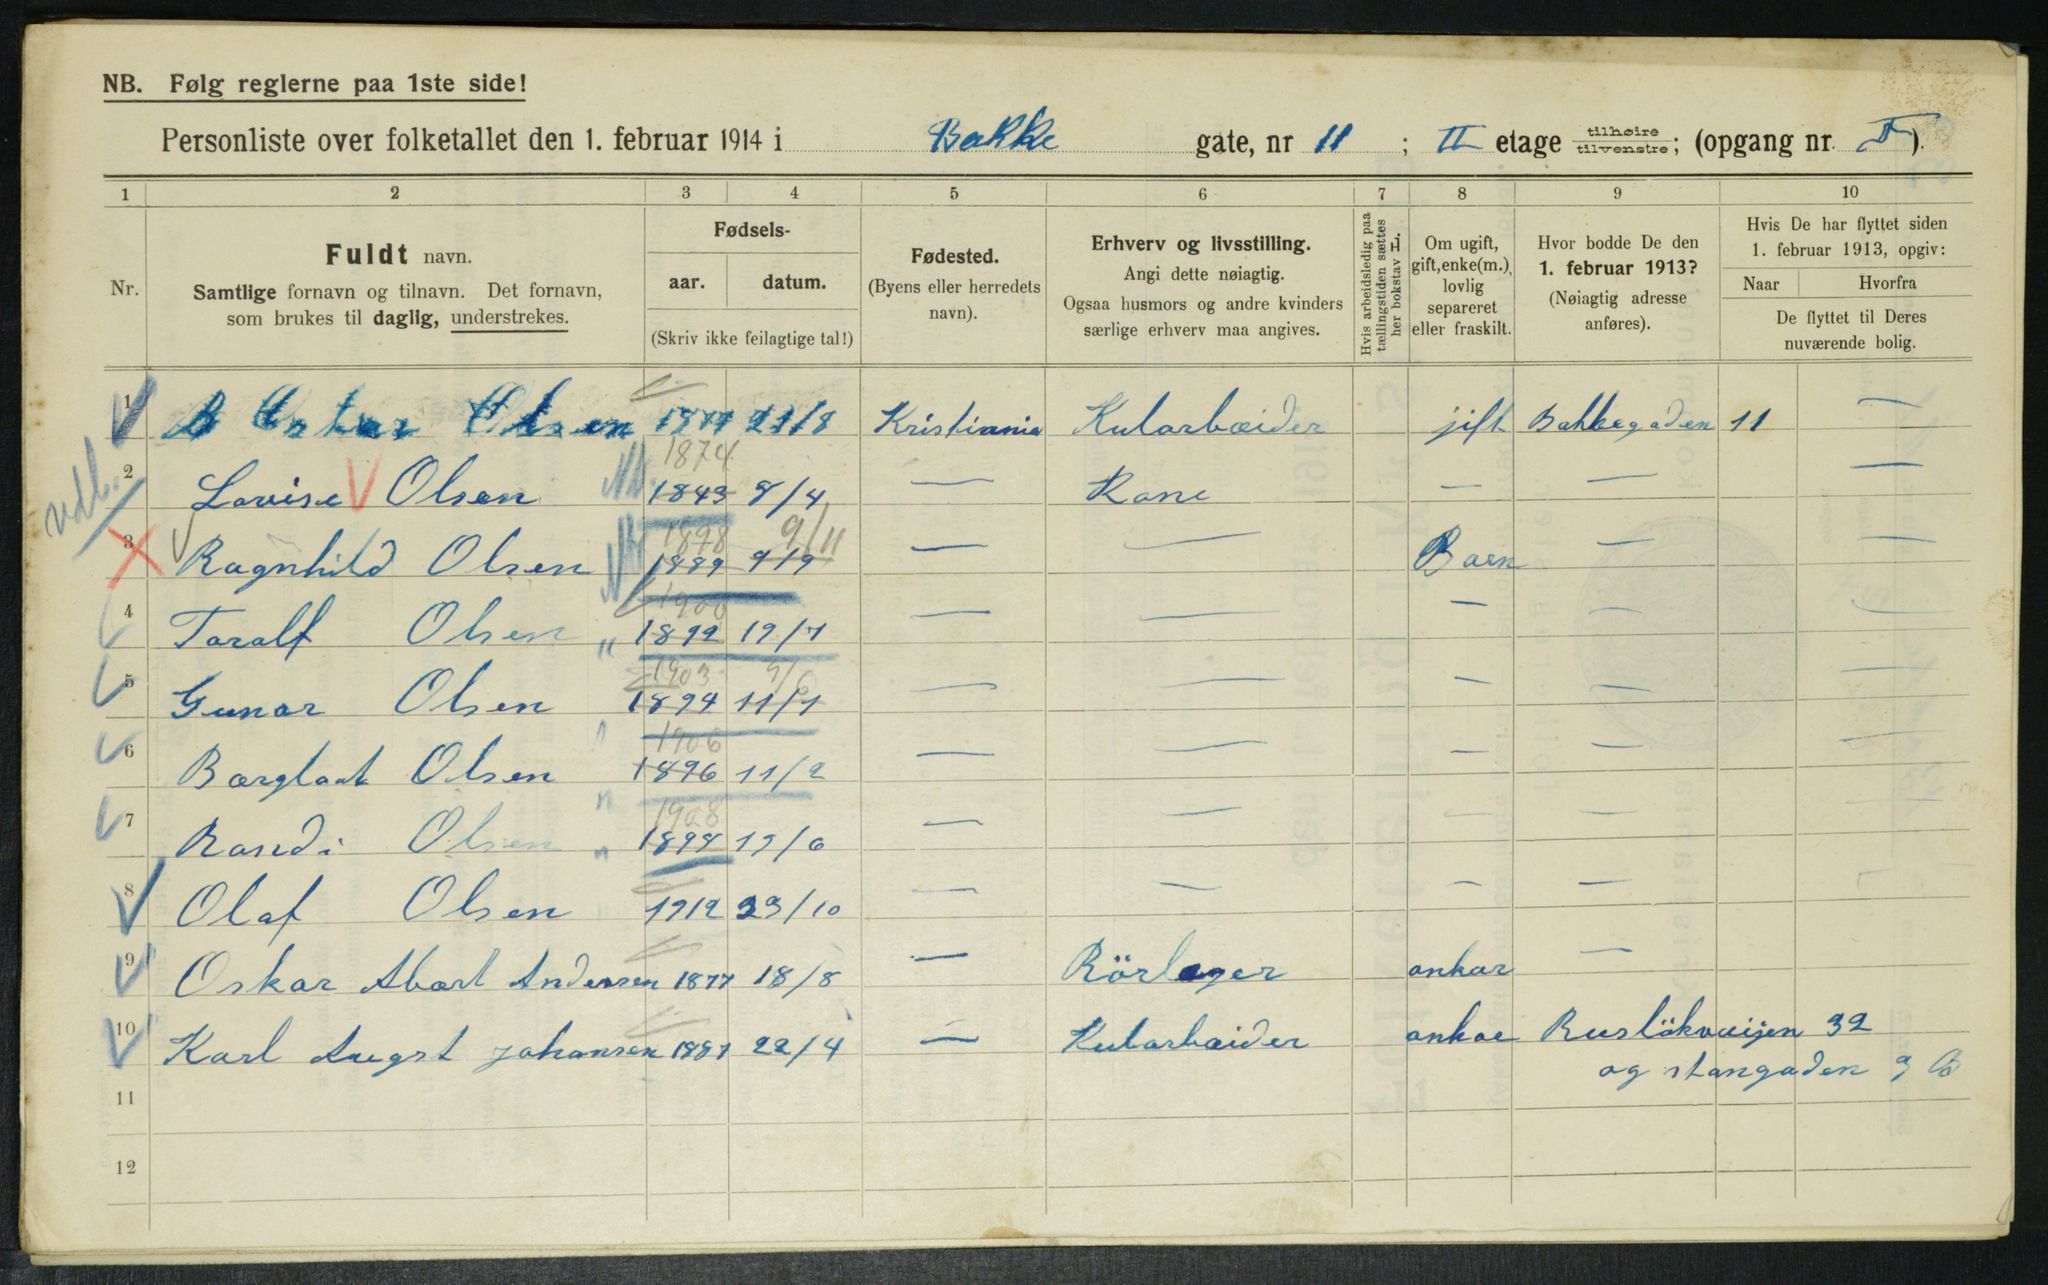 NB. Følg reglerne paa 1ste side!
Personliste over folketallet den 1. februar 1914 i Bakke gate, nr 11 ; II etage tilhøire tilvenstre; (opgang nr. ).
1 2 3 4 5 6 7 8 9 10
Nr.
Fuldt navn.
Samtlige fornavn og tilnavn. Det fornavn,
som brukes til daglig, understrekes.
Fødsels-
aar. datum.
(Skriv ikke feilagtige tal!)
Fødested.
(Byens eller herredets
navn).
Erhverv og livsstilling.
Angi dette nøiagtig.
Ogsaa husmors og andre kvinders
særlige erhverv maa angives.
Hvis arbeidsledig paa
tællingstiden sættes
her bokstav L.
Om ugift,
gift, enke(m.),
lovlig
separeret
eller fraskilt.
Hvor bodde De den
1. februar 1913?
(Nøiagtig adresse
anføres).
Hvis De har flyttet siden
1. februar 1913, opgiv:
Naar Hvorfra
De flyttet til Deres
nuværende bolig.
1 Olsen 1877 21/8 Kristiania Kularbæider jift Bakkegaden 11 —
1874
2 Lovise Olsen 1843 8/4 — Kone — — —
1898 9/11
3 Ragnhild Olsen 1889 9/9 — — Barn — —
1900
4 Toralf Olsen " 1892 19/7 — — — — —
1903
5 Gunar Olsen 1894 11/7 — — — — —
1906
6 Bærglaat Olsen 1896 11/2 — — — — —
1908
7 Randi Olsen " 1898 19/6 — — — — —
8 Olaf Olsen 1912 23/10 — — — —
9 Oskar Abært Andersen 1877 18/8 — Rörleger onkar —
10 Karl Augst Johansen 1887 22/4 — Kularbæider onkae Ruslökvæijen 32
og stangaden 9 B
11
12